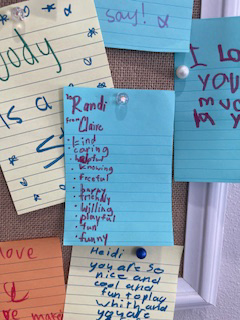 say!
ody
is a
I Lo
you
To Randi
from Claire
• kind
• caring
• helpful
• knowing
• happy
• friendly
• willing
• playful
• fun
• funny
Heidi
you are so
nice and
cool and
fun to play
whith and
you are
love
&